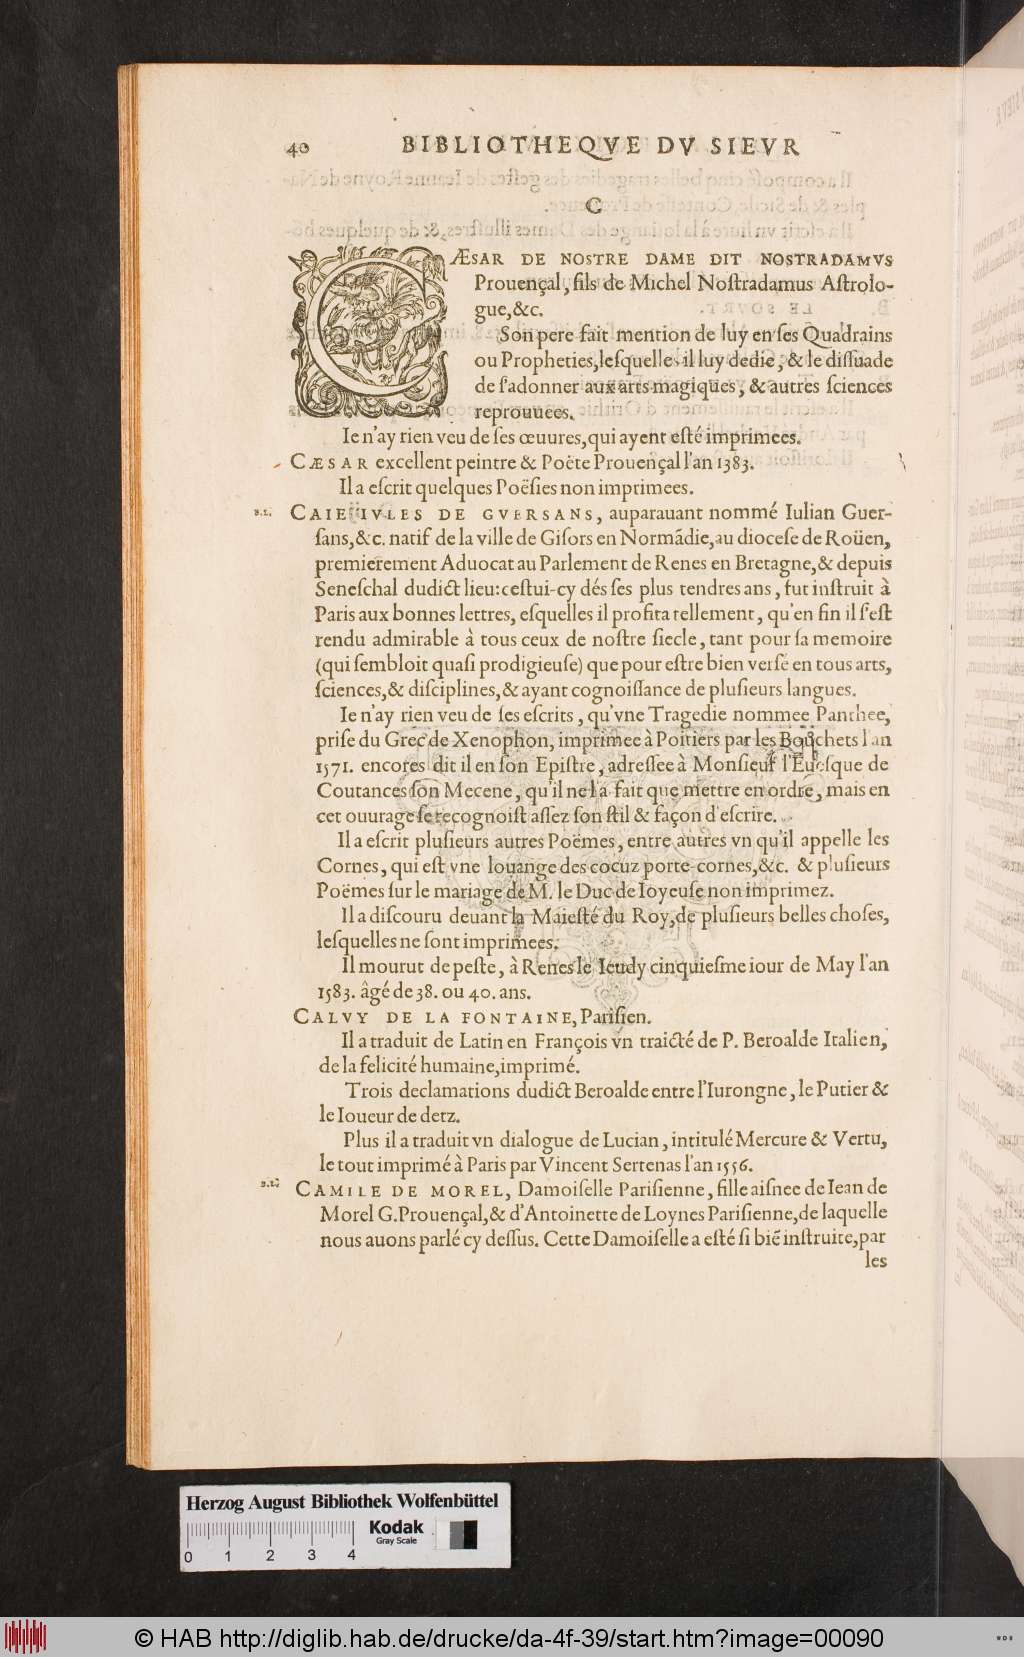 40 BIBLIOTHEQVE DV SIEVR
C
CÆSAR DE NOSTRE DAME DIT NOSTRADAMVS
Prouençal, fils de Michel Noſtradamus Aſtrolo-
gue, &c.
Son pere fait mention de luy en ſes Quadrains
ou Propheties, leſquelles il luy dedie, & le diſſuade
de s'adonner aux arts magiques, & autres ſciences
reprouuees.
Ie n'ay rien veu de ſes œuures, qui ayent eſté imprimees.
CÆSAR excellent peintre & Poëte Prouençal l'an 1383.
Il a eſcrit quelques Poëſies non imprimees.
CAIE IVLES DE GVERSANS, auparauant nommé Iulian Guer-
ſans, &c. natif de la ville de Giſors en Normãdie, au dioceſe de Roüen,
premierement Aduocat au Parlement de Renes en Bretagne, & depuis
Seneſchal dudict lieu: ceſtui-cy dés ſes plus tendres ans, fut inſtruit à
Paris aux bonnes lettres, eſquelles il profita tellement, qu'en fin il s'eſt
rendu admirable à tous ceux de noſtre ſiecle, tant pour ſa memoire
(qui ſembloit quaſi prodigieuſe) que pour eſtre bien verſé en tous arts,
ſciences, & diſciplines, & ayant cognoiſſance de pluſieurs langues.
Ie n'ay rien veu de ſes eſcrits, qu'vne Tragedie nommee Panthee,
priſe du Grec de Xenophon, imprimee à Poitiers par les Bouchets l'an
1571. encores dit il en ſon Epiſtre, adreſſee à Monſieur l'Eueſque de
Coutances ſon Mecene, qu'il ne l'a fait que mettre en ordre, mais en
cet ouurage ſe recognoiſt aſſez ſon ſtil & façon d'eſcrire.
Il a eſcrit pluſieurs autres Poëmes, entre autres vn qu'il appelle les
Cornes, qui eſt vne louange des cocuz porte-cornes, &c. & pluſieurs
Poëmes ſur le mariage de M. le Duc de Ioyeuſe non imprimez.
Il a diſcouru deuant la Maieſté du Roy, de pluſieurs belles choſes,
leſquelles ne ſont imprimees.
Il mourut de peſte, à Renes le Ieudy cinquieſme iour de May l'an
1583. âgé de 38. ou 40. ans.
CALVY DE LA FONTAINE, Pariſien.
Il a traduit de Latin en François vn traicté de P. Beroalde Italien,
de la felicité humaine, imprimé.
Trois declamations dudict Beroalde entre l'Iurongne, le Putier &
le Ioueur de detz.
Plus il a traduit vn dialogue de Lucian, intitulé Mercure & Vertu,
le tout imprimé à Paris par Vincent Sertenas l'an 1556.
CAMILE DE MOREL, Damoiſelle Pariſienne, fille aiſnee de Iean de
Morel G. Prouençal, & d'Antoinette de Loynes Pariſienne, de laquelle
nous auons parlé cy deſſus. Cette Damoiſelle a eſté ſi biẽ inſtruite, par
les
Herzog August Bibliothek Wolfenbüttel
Kodak
Gray Scale
0 1 2 3 4
© HAB http://diglib.hab.de/drucke/da-4f-39/start.htm?image=00090